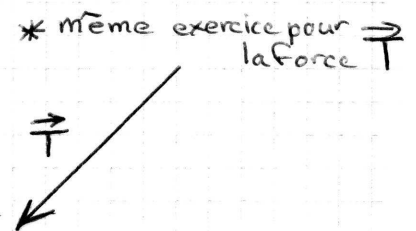 * même exercice pour
la force T⃗
T⃗